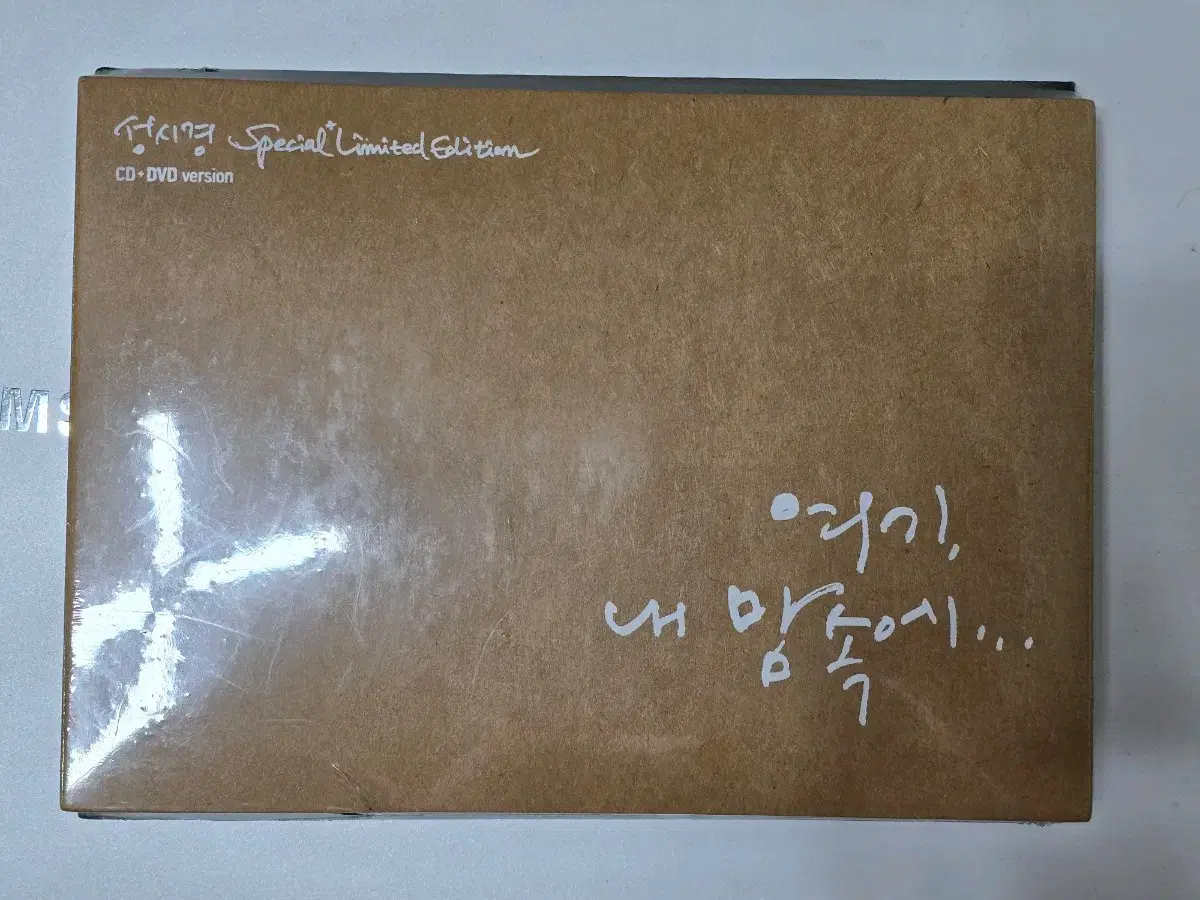 성시경 Special+ Limited Edition
CD+DVD version
여기,
내 맘 속에...